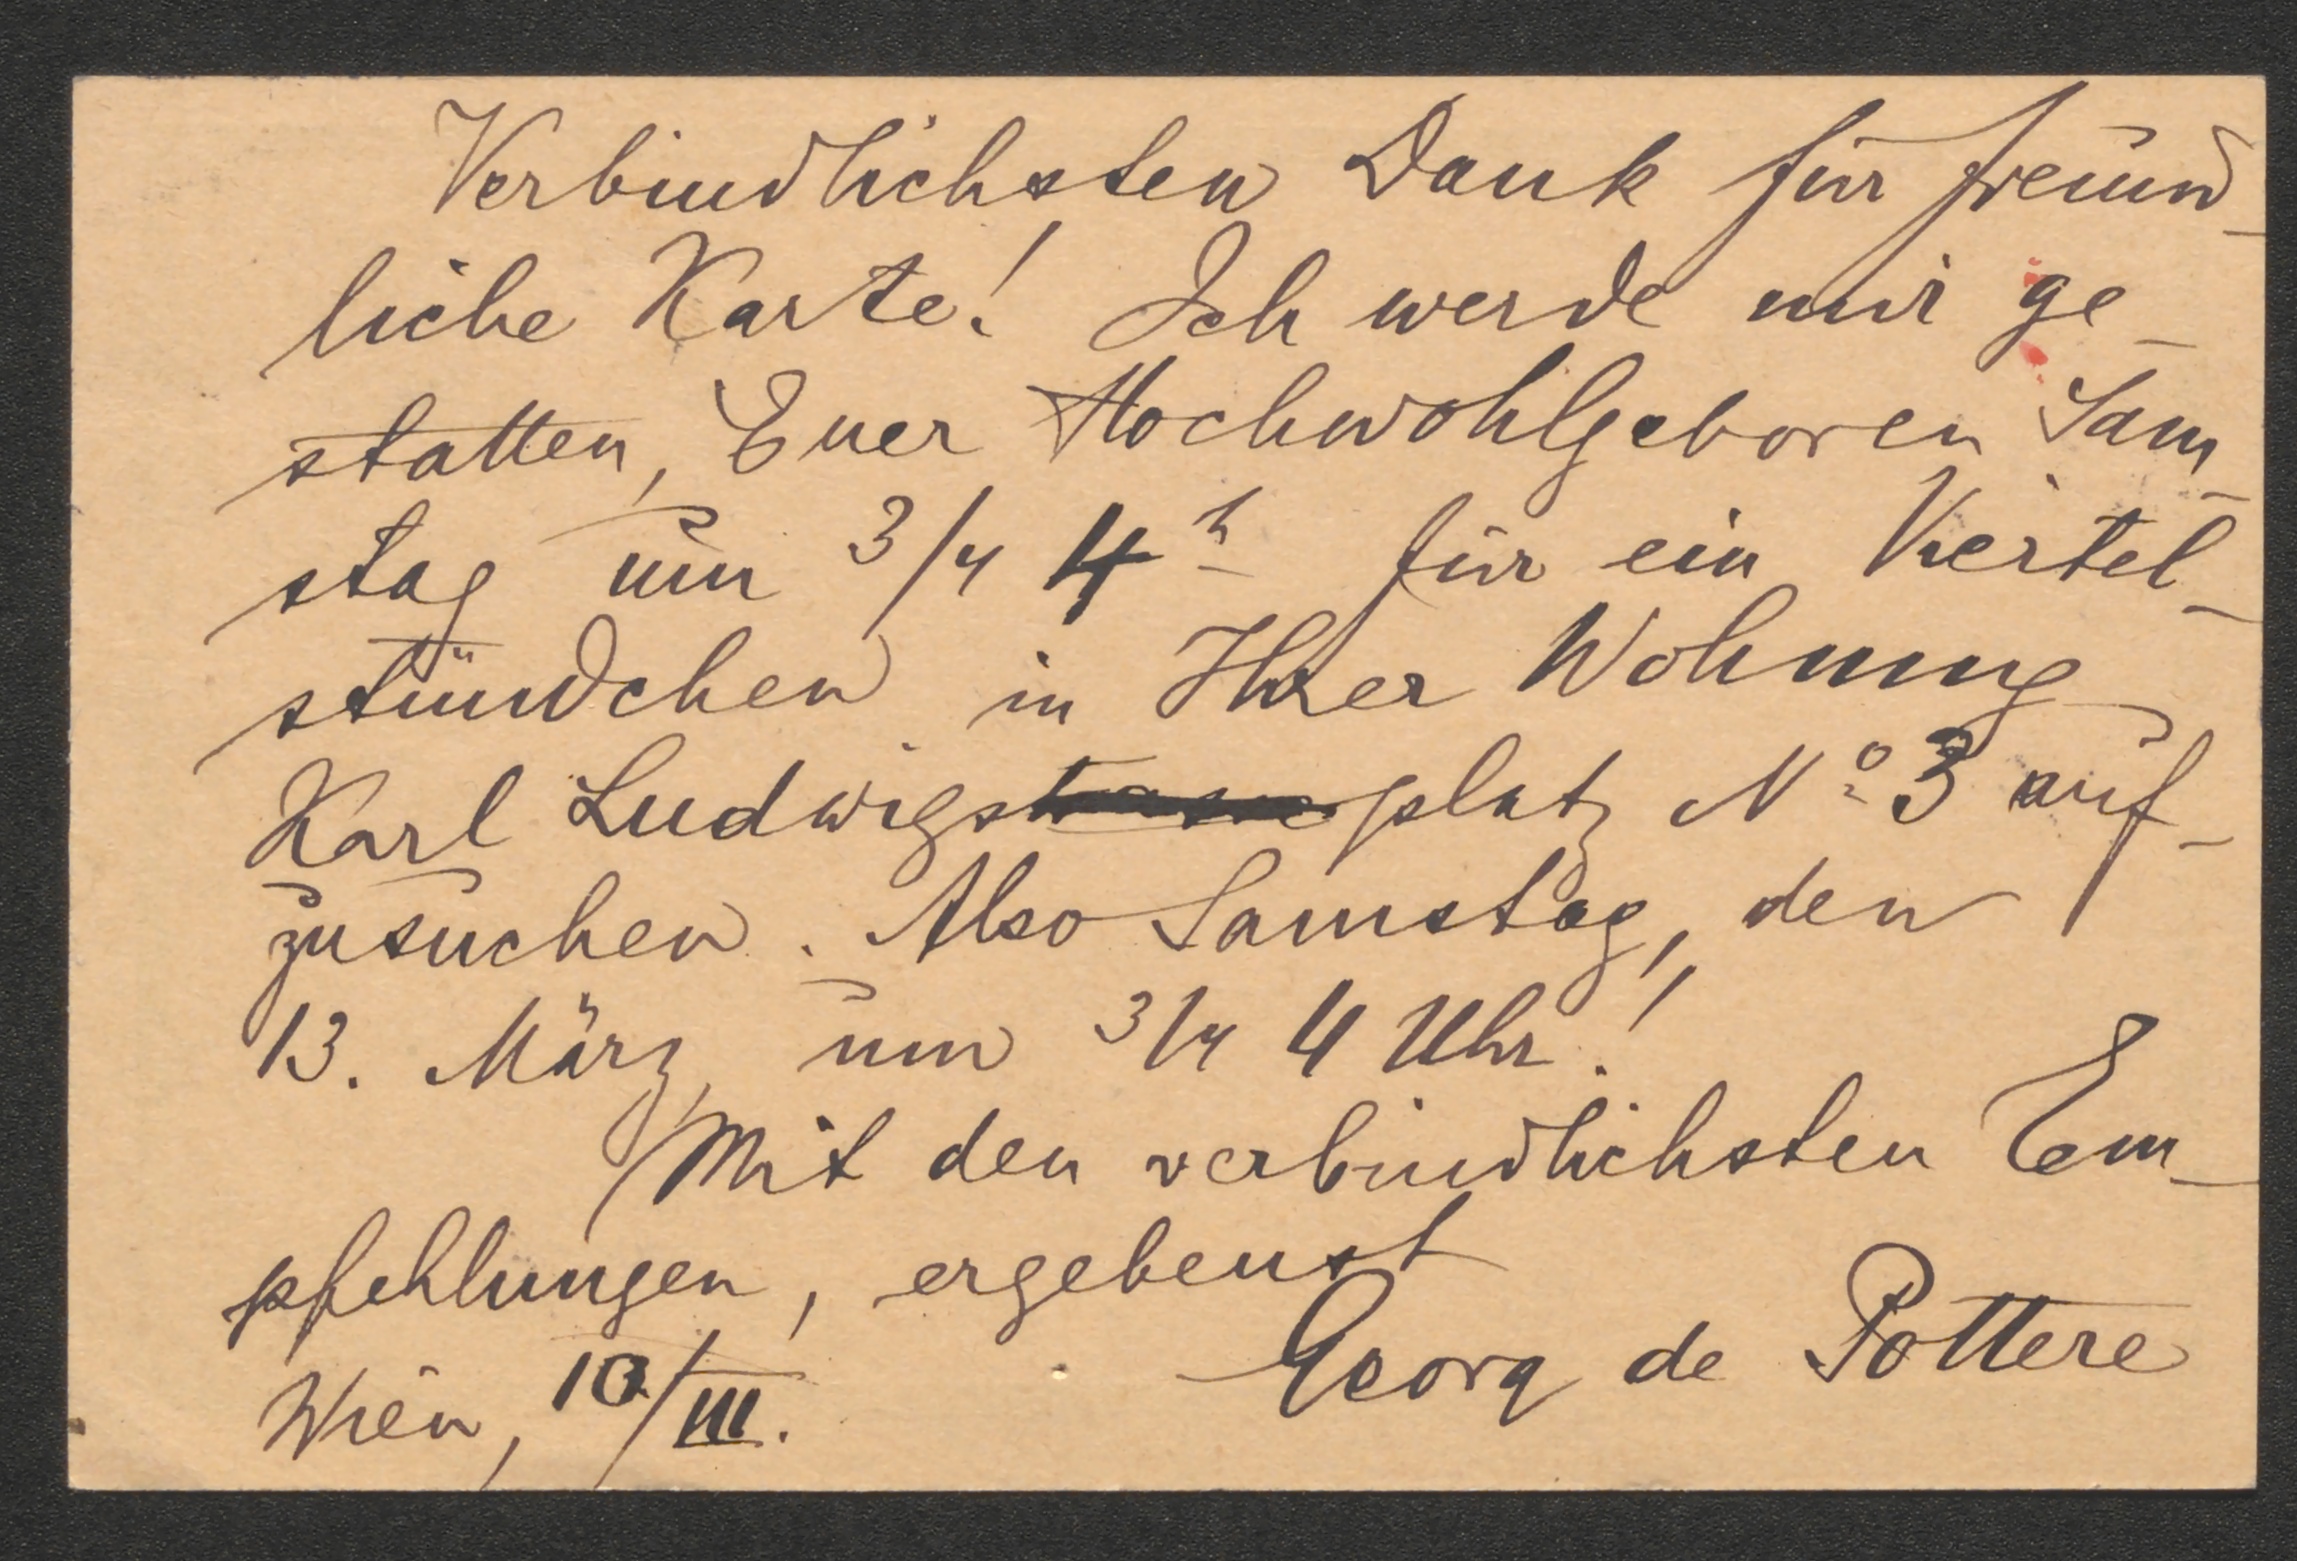 Verbindlichsten Dank für freund-
liche Karte! Ich werde mir ge-
statten, Euer Hochwohlgeboren Sam-
stag um 3/4 4h für ein Viertel-
stündchen in Ihrer Wohnung
Karl Ludwigstrasse platz No 3 auf-
zusuchen. Also Samstag, den
13. März, um 3/4 4 Uhr!
Mit den verbindlichsten Em-
pfehlungen, ergebenst
Georg de Pottere
Wien, 10/III.